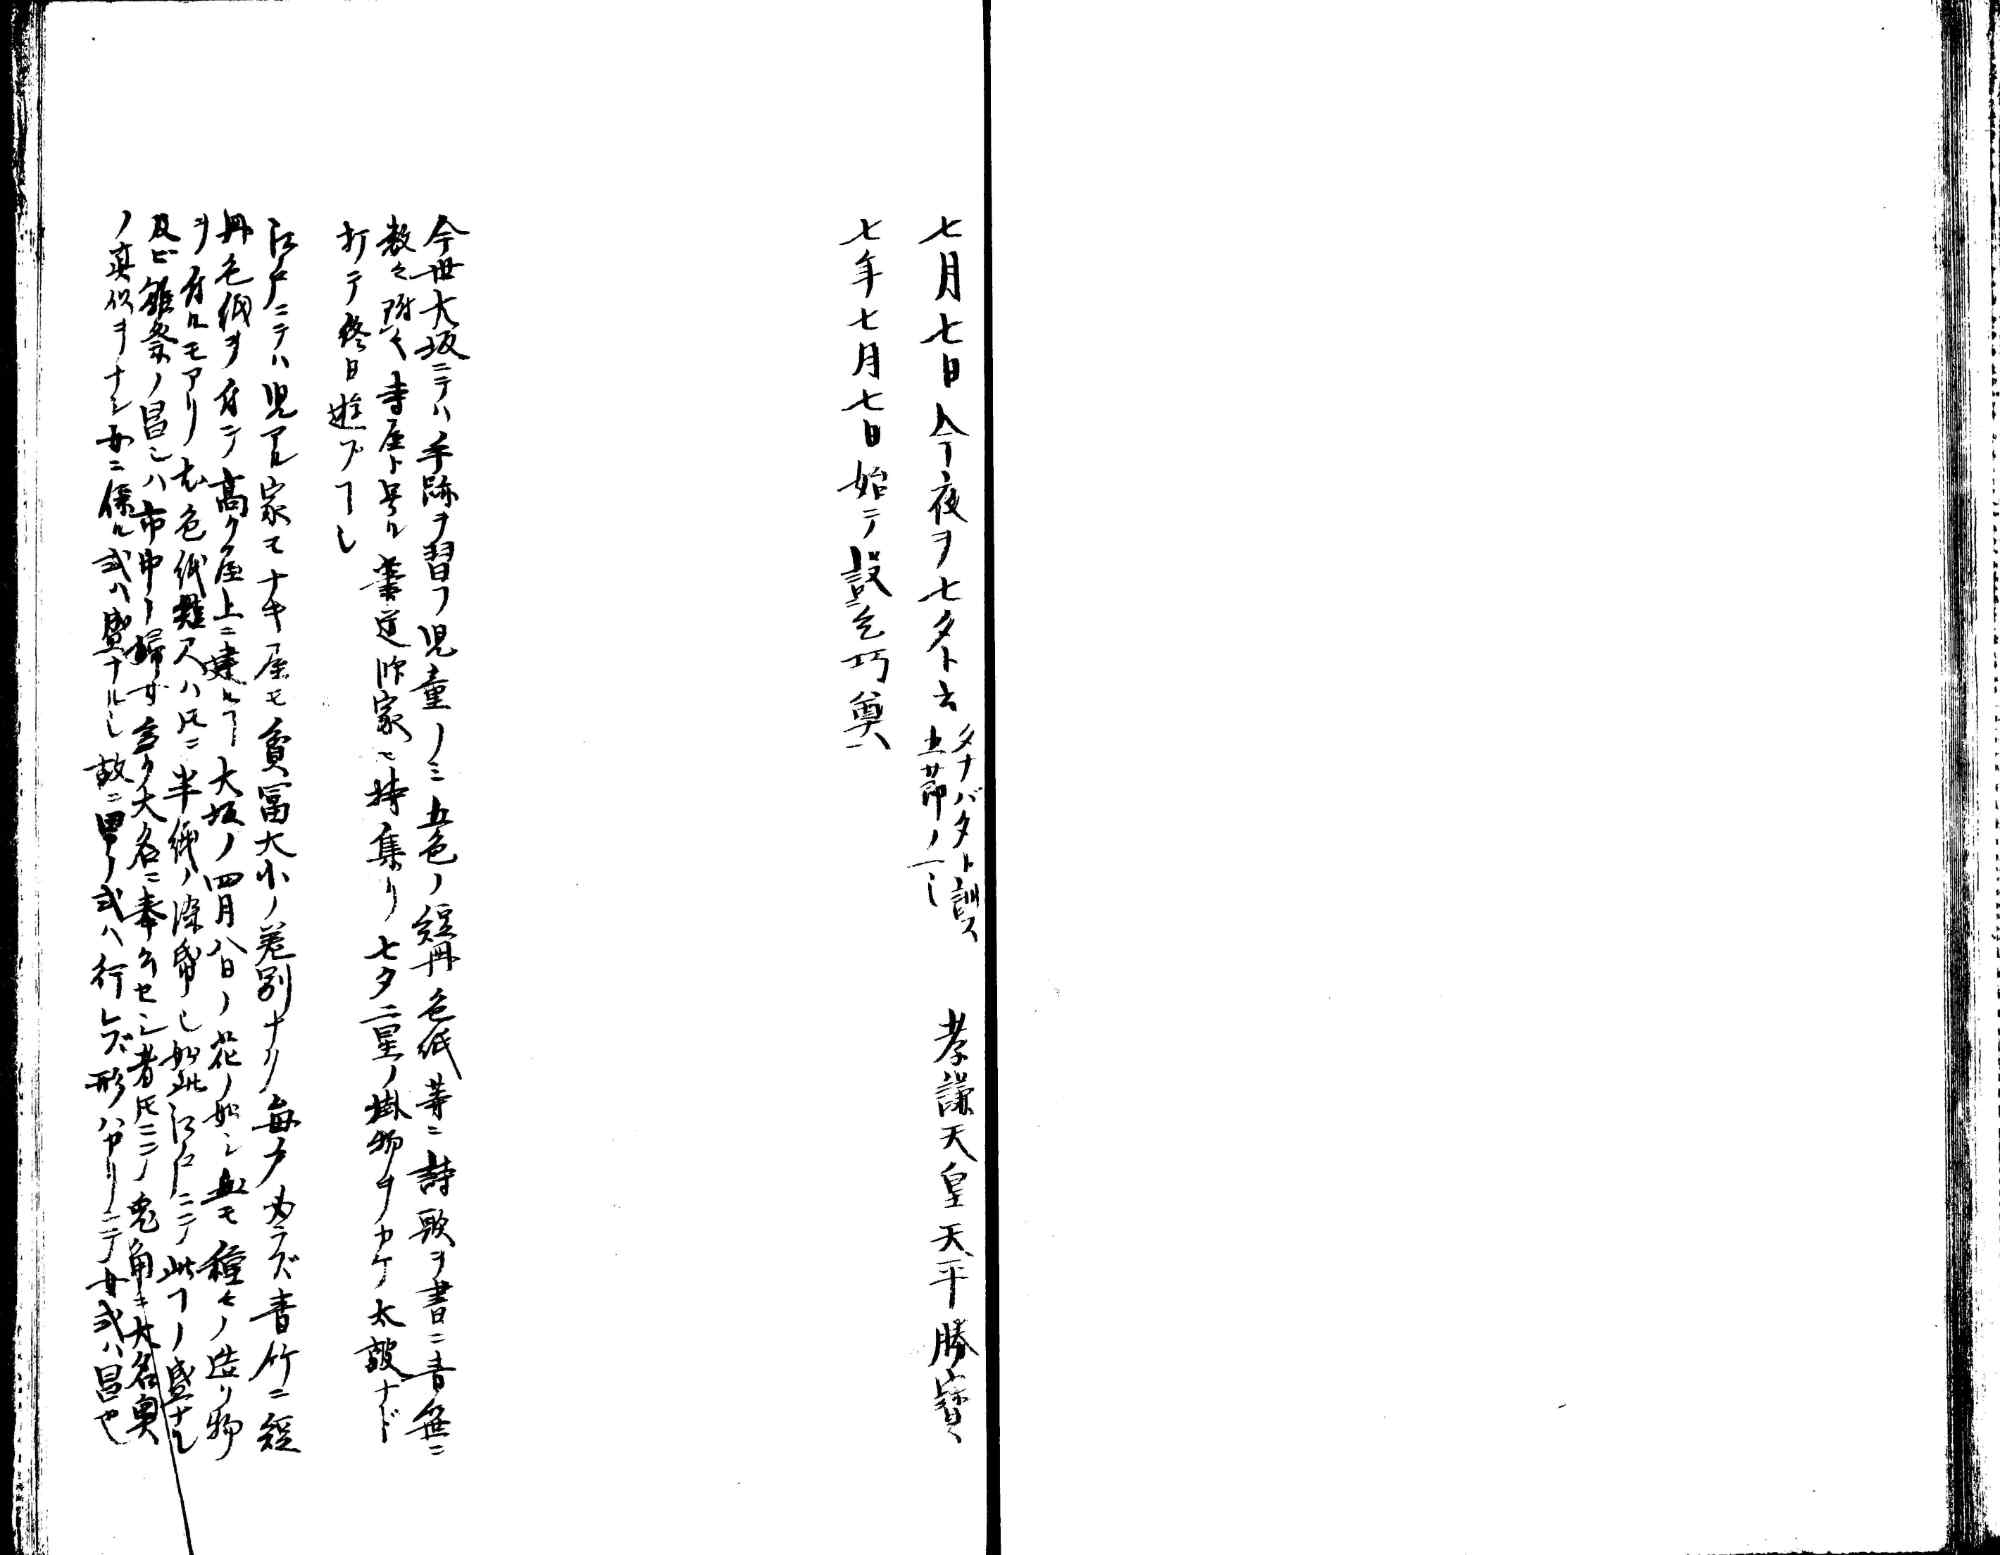 七月七日今夜ヲ七夕ト云タナバタト訓ス五節ノ一也　孝謙天皇天平勝寳
七年七月七日始テ設乞巧奠
今世大坂ニテハ手跡ヲ習フ児童ノミ五色ノ短冊色紙等ニ詩歌ヲ書ニ青笹ニ
数々附ク寺屋ト号ル書道師家ヘ持集リ七夕二星ノ掛物ヲカケ太皷ナド
打テ終日遊ブヿ也
江戸ニテハ児アル家モナキ屋モ貧冨大小ノ差別ナク毎戸必ラズ青竹ニ短
冊色紙ヲ付テ高ク屋上ニ建ルヿ大坂ノ四月八日ノ花ノ如シ然モ種々ノ造リ物
ヲ付ルモアリ尤色紙短尺ハ𪜈ニ半紙ノ染帋也如此江戸ニテ此ヿノ盛ナル
及ビ雛祭ノ昌シハ市中ノ婦女多ク大名ニ奉公セシ者𪜈ニテ兎角ニ大名奥
ノ真似ヲナシ女ニ係ル式ハ盛ナル也故ニ男ノ式ハ行レズ形ハヤリニテ女式ハ昌也